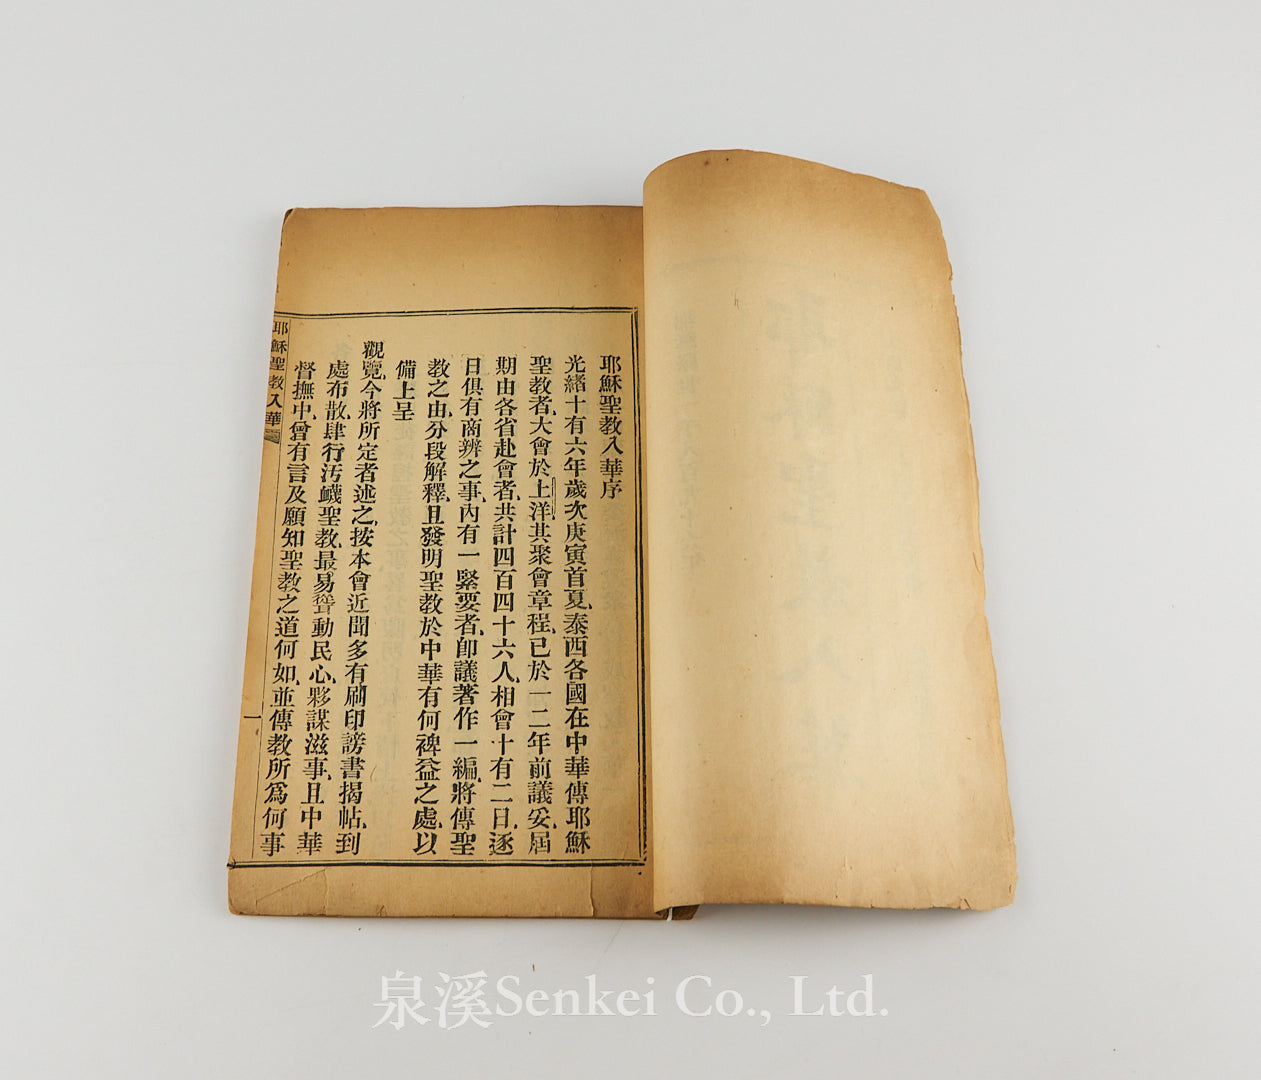 耶穌聖教入華序
光緒十有六年歲次庚寅首夏、泰西各國在中華傳耶穌
聖教者、大會於上洋、其聚會章程、已於一二年前議妥、屆
期由各省赴會者、共計四百四十六人、相會十有二日、逐
日俱有商辨之事、內有一緊要者、卽議著作一編、將傳聖
教之由、分段解釋、且發明聖教於中華有何裨益之處、以
備上呈
觀覽、今將所定者述之、按本會近聞多有刷印謗書揭帖、到
處布散、肆行汚衊聖教、最易聳動民心、夥謀滋事、且中華
督撫中、曾有言及願知聖教之道何如、並傳教所爲何事
耶穌聖教入華
一
泉溪Senkei Co., Ltd.